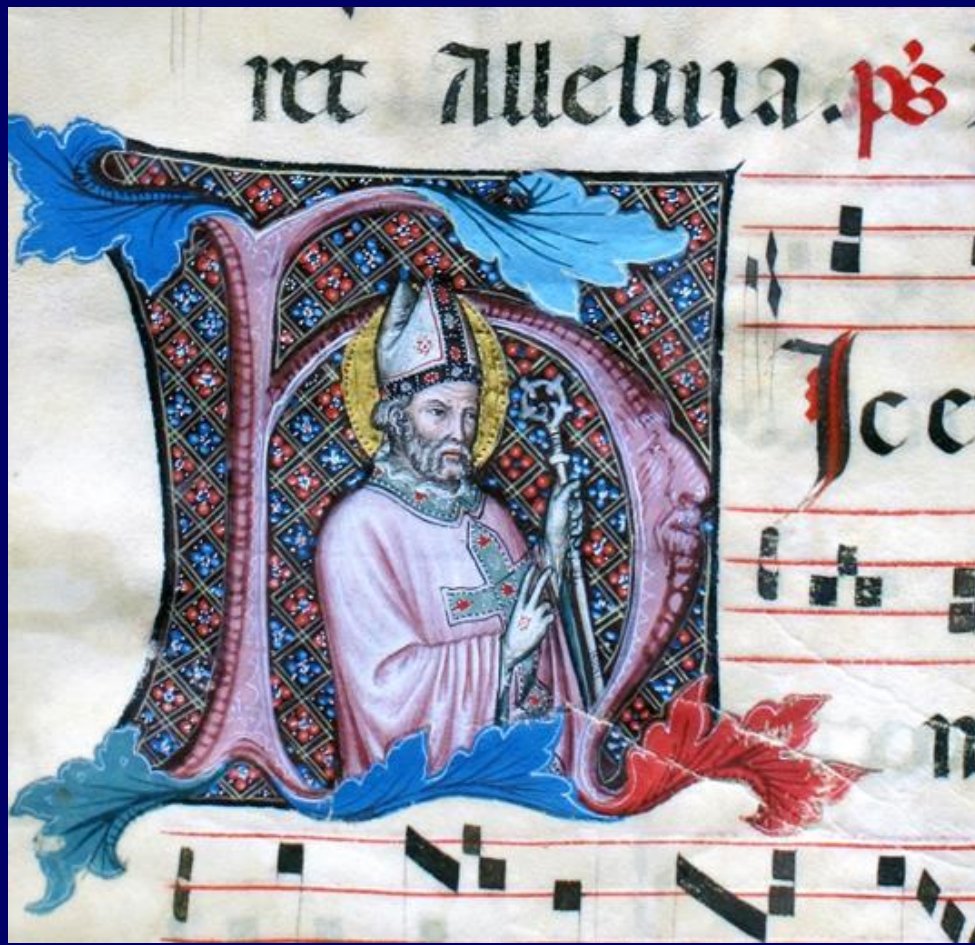 ret Alleluia. p̄s
H
Ice